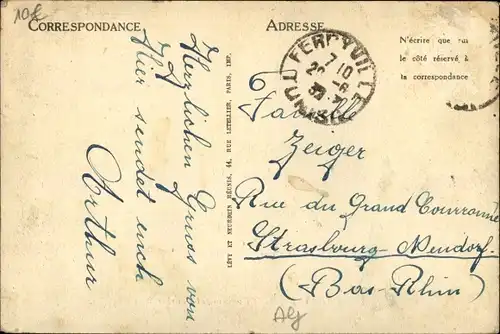 10f
CORRESPONDANCE
ADRESSE
N'écrire que sur
le côté réservé à
la correspondance
FERRYVILLE
7 10
TUNISIE
Herzlichen Gruss von
Hier sendet euch
Arthur
LEVY ET NEURDEIN RÉUNIS, 44, RUE LETELLIER, PARIS, IMP.
Famille
Zeiger
Rue du Grand Courronné
Strasbourg-Neudorf.
(Bas-Rhin)
Alg